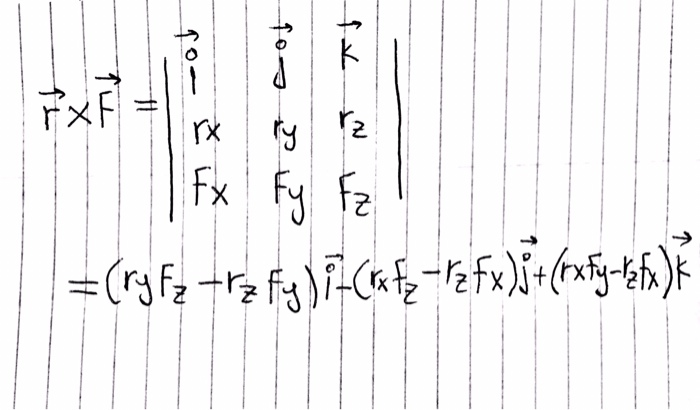 r⃗ × F⃗ = | i⃗ j⃗ k⃗ |
| rx ry rz |
| Fx Fy Fz |
= (ryFz − rzFy) i⃗ − (rxfz − rzFx) j⃗ + (rxfy − rzfx) k⃗